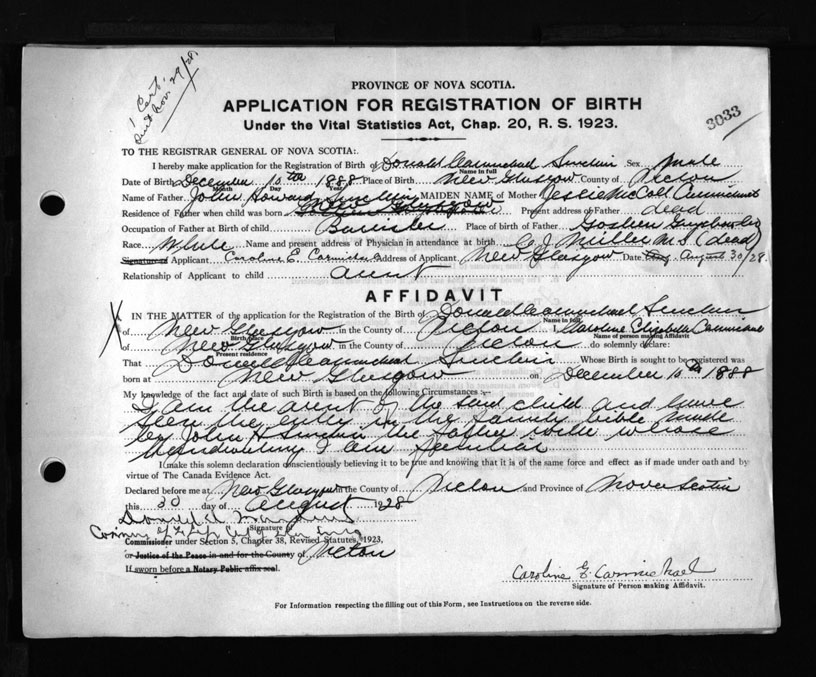 1 Cert.
Nov. 29/28
PROVINCE OF NOVA SCOTIA.
3033
APPLICATION FOR REGISTRATION OF BIRTH
Under the Vital Statistics Act, Chap. 20, R. S. 1923.
TO THE REGISTRAR GENERAL OF NOVA SCOTIA:
I hereby make application for the Registration of Birth of Donald Carmichael Sinclair Sex Male
Name in full
Date of Birth December 10th 1888 Place of Birth New Glasgow County of Pictou
Month Day Year
Name of Father John Howard Sinclair MAIDEN NAME of Mother Jessie McColl Carmichael
Residence of Father when child was born New Glasgow Present address of Father dead
Occupation of Father at Birth of child Barrister Place of birth of Father Goshen Guysboro Co
Race White Name and present address of Physician in attendance at birth Miller (dead)
Signature of Applicant Caroline E. Carmichael Address of Applicant New Glasgow Date August 30/28
Relationship of Applicant to child aunt
AFFIDAVIT
IN THE MATTER of the application for the Registration of the Birth of Donald Carmichael Sinclair
Name in full
of New Glasgow in the County of Pictou I, Caroline Elizabeth Carmichael
Birth place Name of person making Affidavit
of New Glasgow in the County of Pictou do solemnly declare:
Present residence
That Donald Carmichael Sinclair Whose Birth is sought to be registered was
born at New Glasgow on December 10th 1888
My knowledge of the fact and date of such Birth is based on the following Circumstances:—
I am the aunt of the said child and have
seen the entry in the family bible made
by John H Sinclair the father with whose
handwriting I am familiar
I make this solemn declaration conscientiously believing it to be true and knowing that it is of the same force and effect as if made under oath and by
virtue of The Canada Evidence Act.
Declared before me at New Glasgow in the County of Pictou and Province of Nova Scotia
this 30 day of August 1928
Donald
Signature
Commissioner under Section 5, Chapter 38, Revised Statutes, 1923,
or Justice of the Peace in and for the County of Pictou
If sworn before a Notary Public affix seal.
Caroline E Carmichael
Signature of Person making Affidavit.
For Information respecting the filling out of this Form, see Instructions on the reverse side.